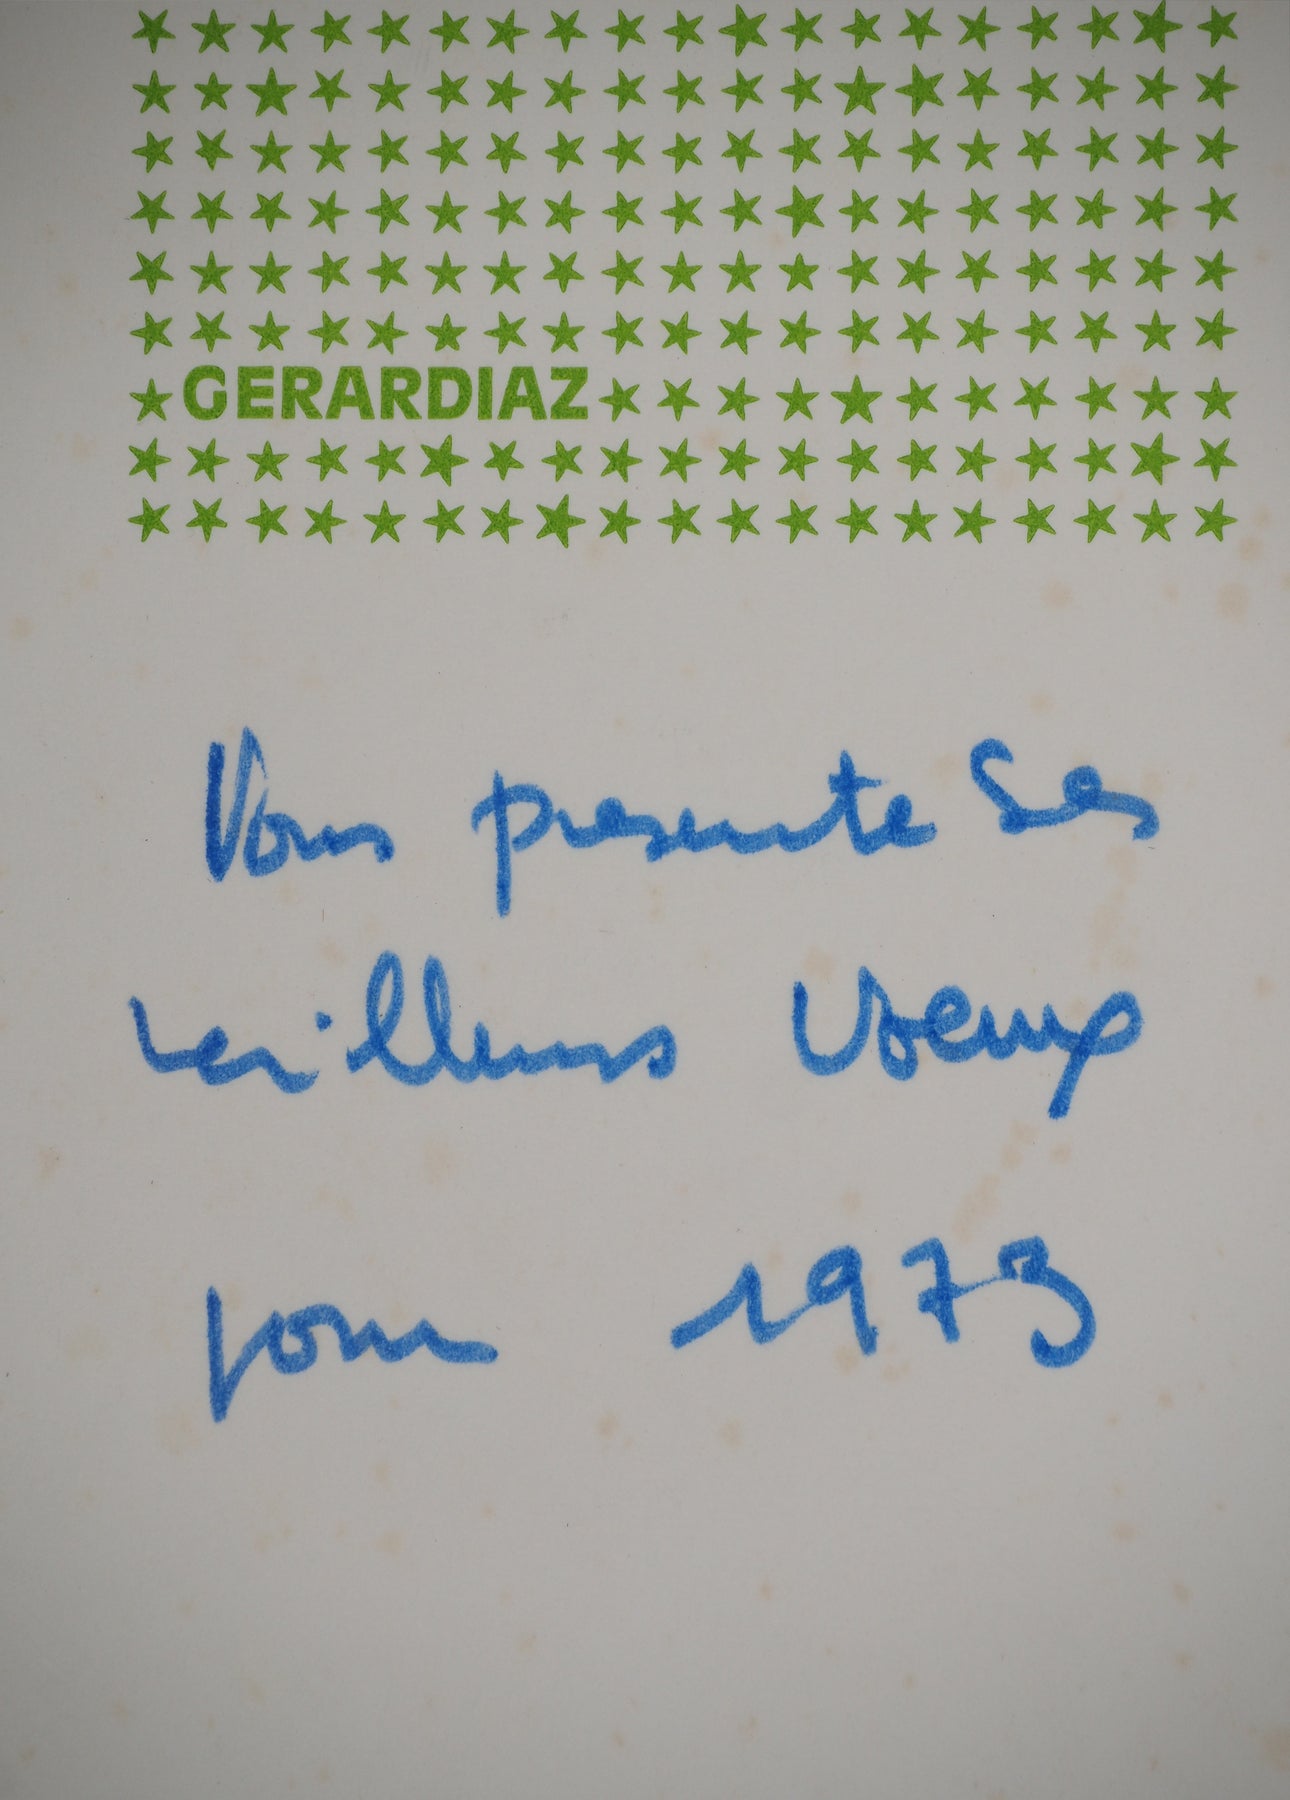 GERARDIAZ
Vous presente Ses
meilleurs Voeux
pour 1973